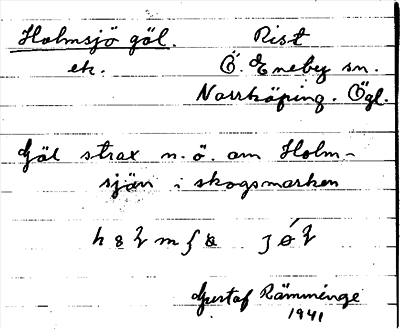 Holmsjö göl. Rist
ek. Ö. Eneby sn.
Norrköping. Ögl.
Göl strax n.ö. om Holm-
sjön i skogsmarken
Gustaf Rämminge
1941